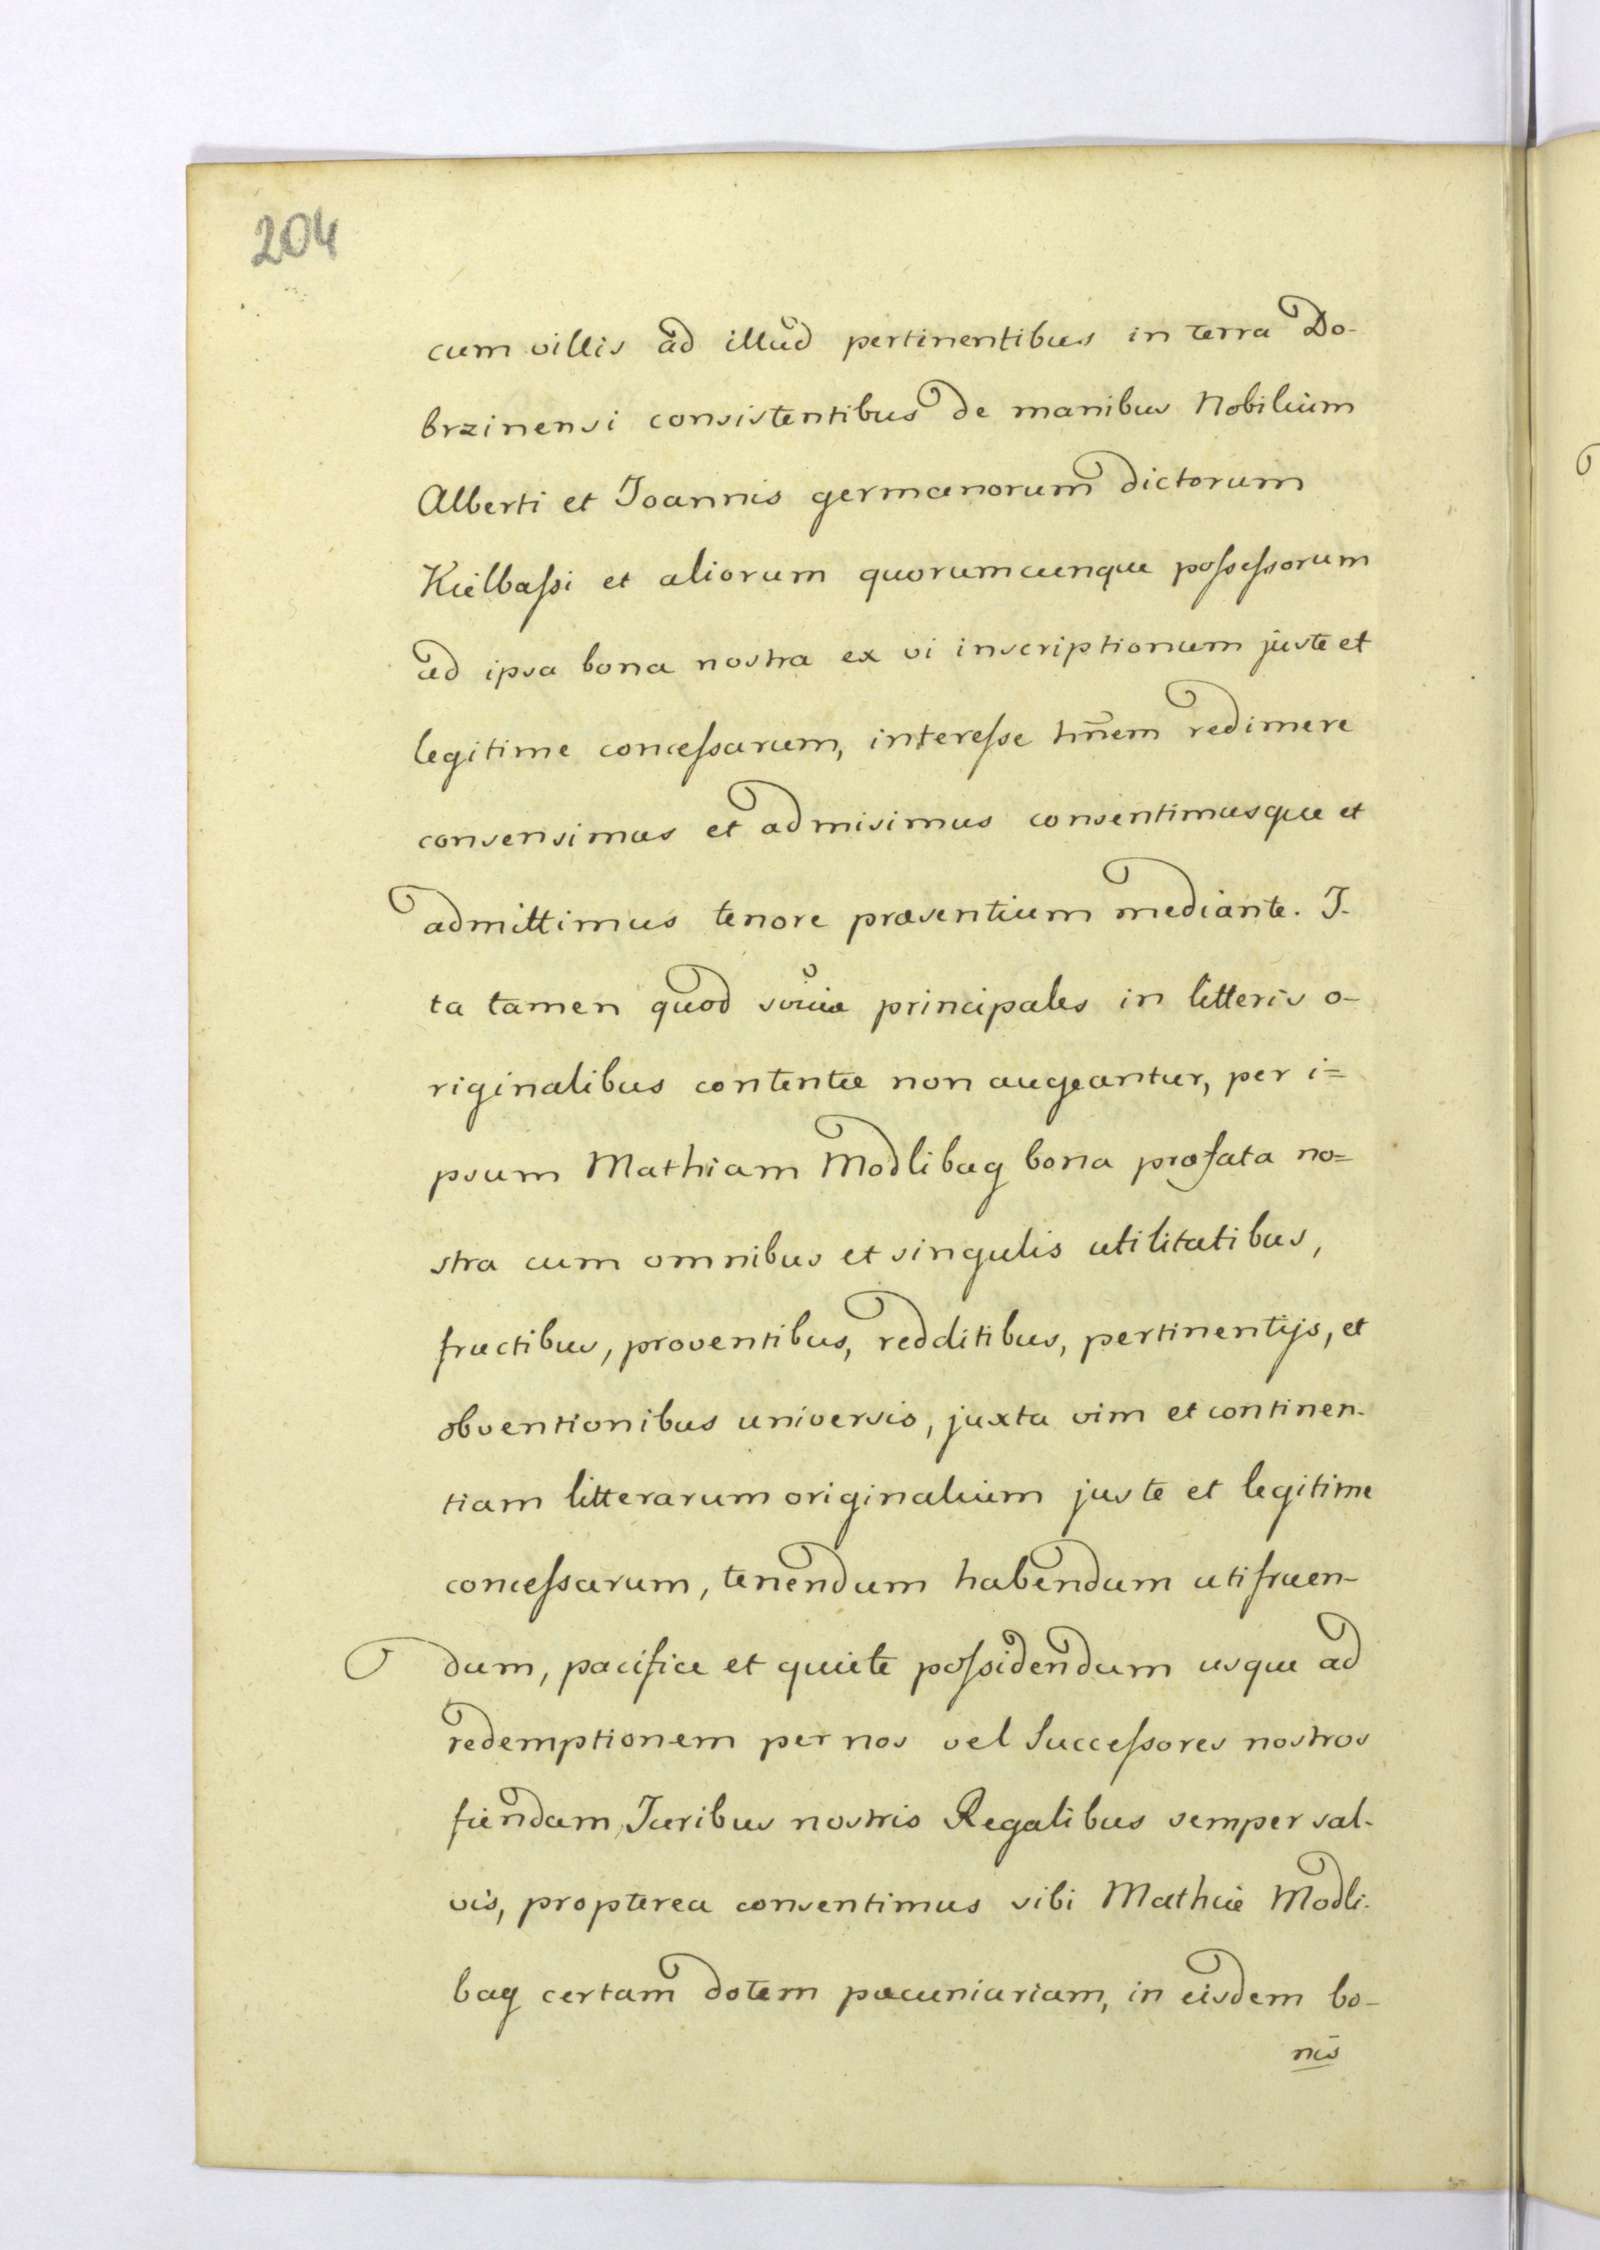 204
cum villis ad illud pertinentibus in terra Do-
brzinensi consistentibus de manibus Nobilium
Alberti et Joannis germanorum dictorum
Kielbassi et aliorum quorumcunque possessorum
ad ipsa bona nostra ex vi inscriptionum juste et
legitime concessarum, interesse hñem redimere
consensimus et admisimus consentimusque et
admittimus tenore præsentium mediante. I-
ta tamen quod principales in litteris o-
riginalibus contentæ non augeantur, per i=
psum Mathiam Modlibag bona præfata no=
stra cum omnibus et singulis utilitatibus,
fructibus, proventibus, redditibus, pertinentijs, et
obventionibus universis, juxta vim et continen-
tiam litterarum originalium juste et legitime
concessarum, tenendum habendum utifruen-
dum, pacifice et quiete possidendum usque ad
redemptionem per nos vel Successores nostros
fiendam, Juribus nostris Regalibus semper sal-
vis, propterea consentimus sibi Mathiæ Modli-
bag certam dotem pæcuniariam, in eisdem bo-
nis